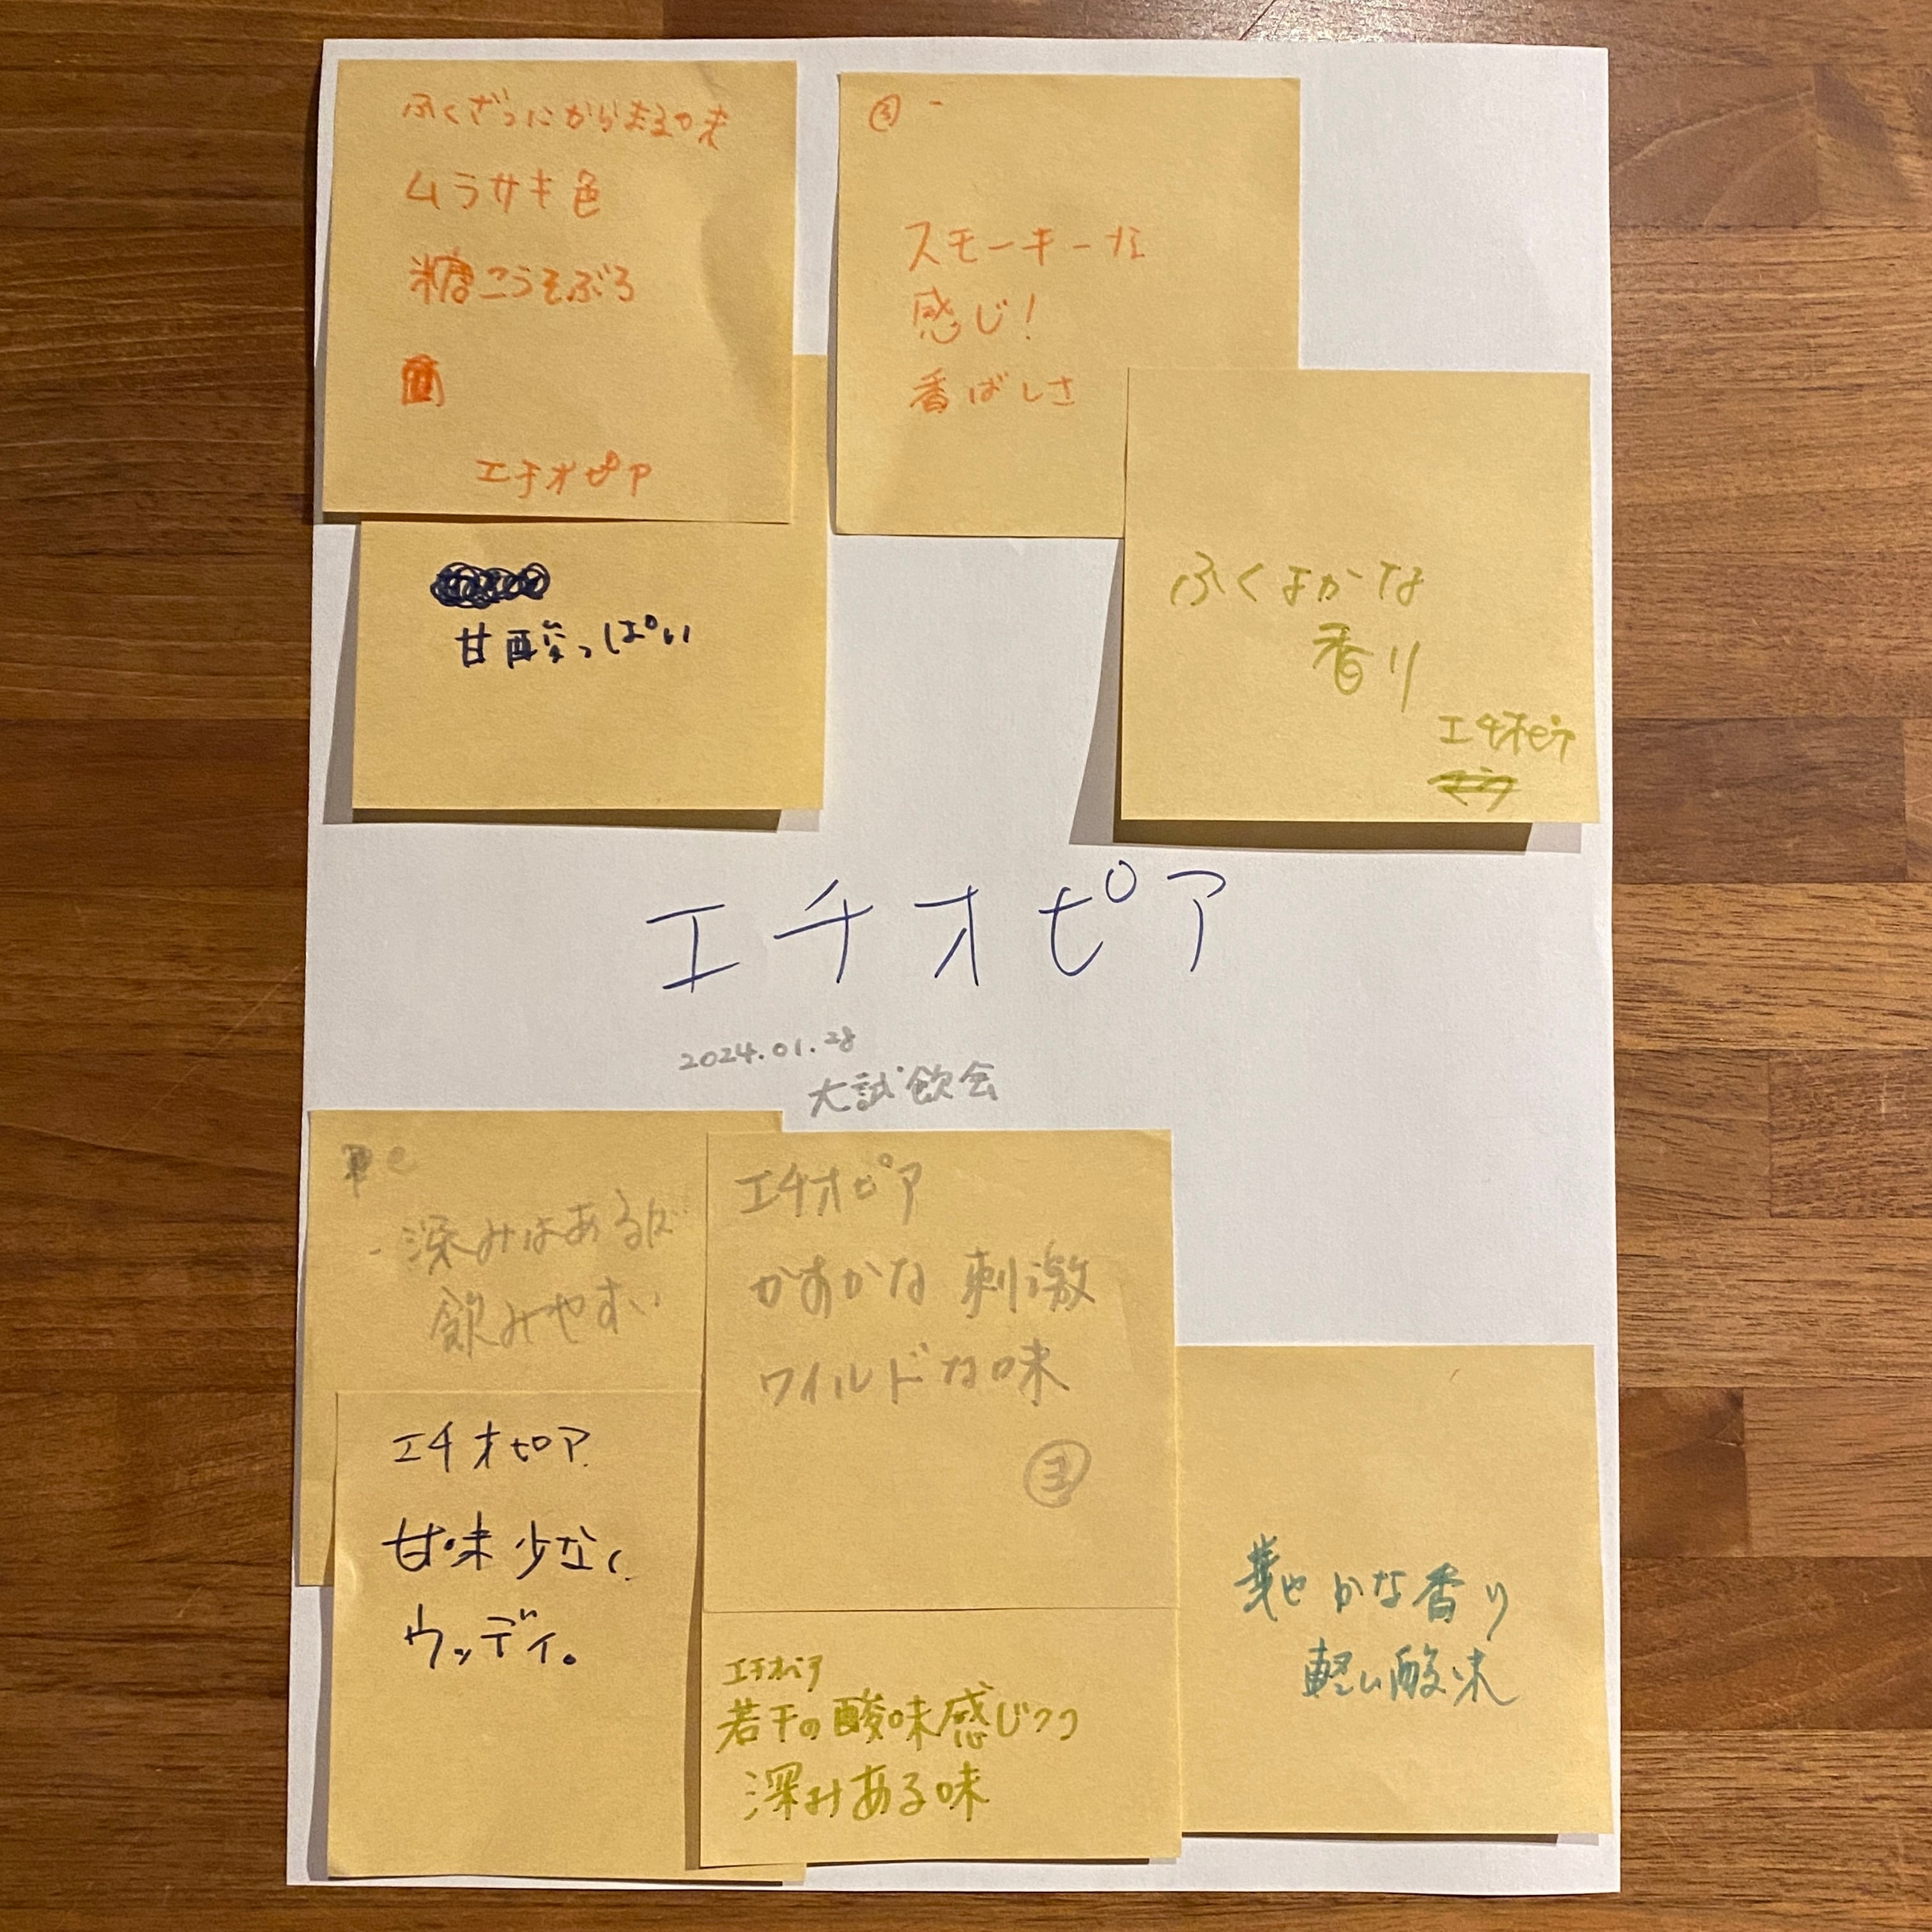 ふくざつにからまる味
ムラサキ色
糖こうそぶろ
エチオピア
甘酸っぱい
スモーキーな
感じ!
香ばしさ
ふくよかな
香り
エチオピア
エチオピア
2024.01.28
大試飲会
・深みはあるが
飲みやすい
エチオピア
かすかな 刺激
ワイルドな味
③
エチオピア
甘味少なく
ウッディ。
エチオピア
若干の酸味感じつつ
深みある味
華やかな香り
軽い酸味